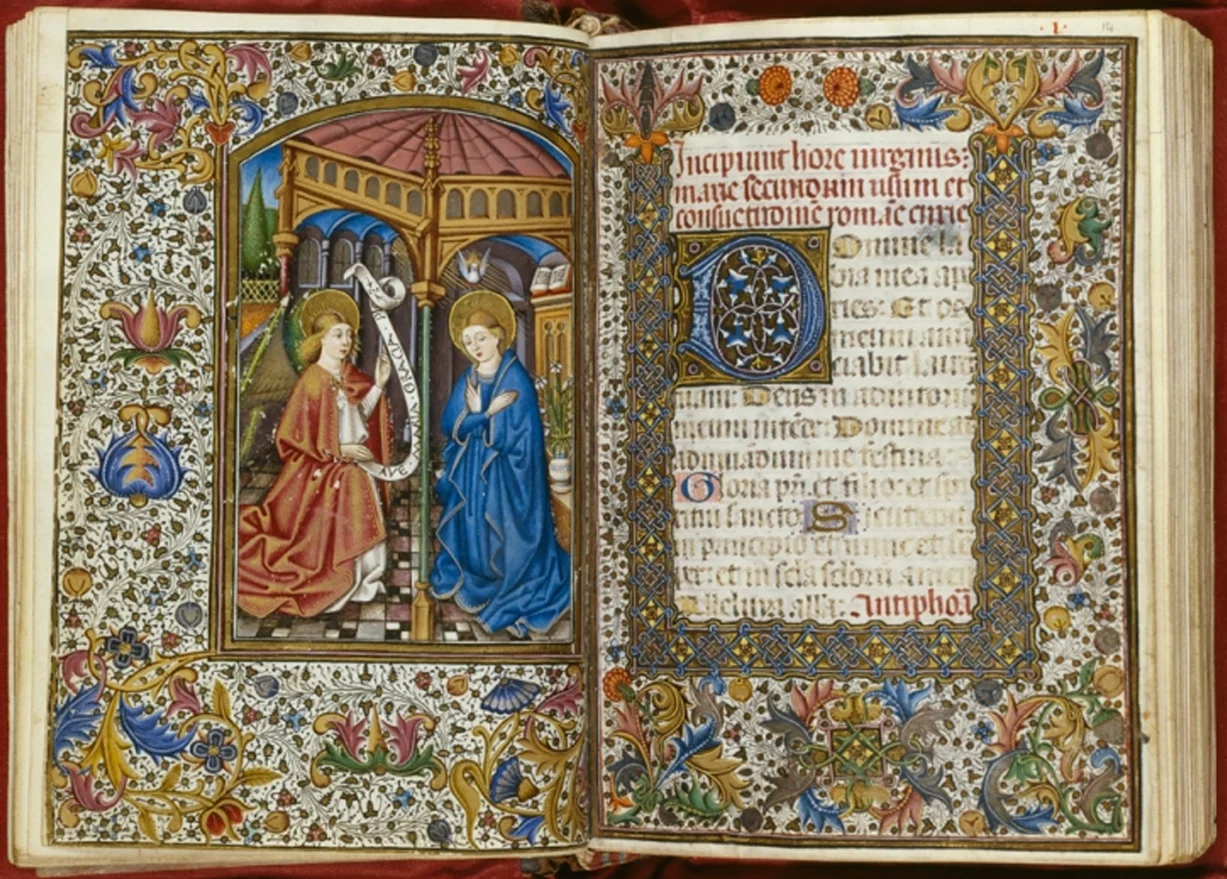 AVE GRACIA
·I·
Incipiunt hore uirginis:
marie secundum usum et
consuetudinē romāe curie
Domine la
bia mea ape
ries: Et os
meum annū
ciabit laudē
tuam: Deus in adiutoriū
meum intēde: Domine ad
adiuuādum me festina:
Gloria pr̄i et filio: et spi
ritui sancto: Sicut erat
in principio et nunc et sē
per: et in sc̄la sc̄lorū amen
Alleluya alla: Antiphoā